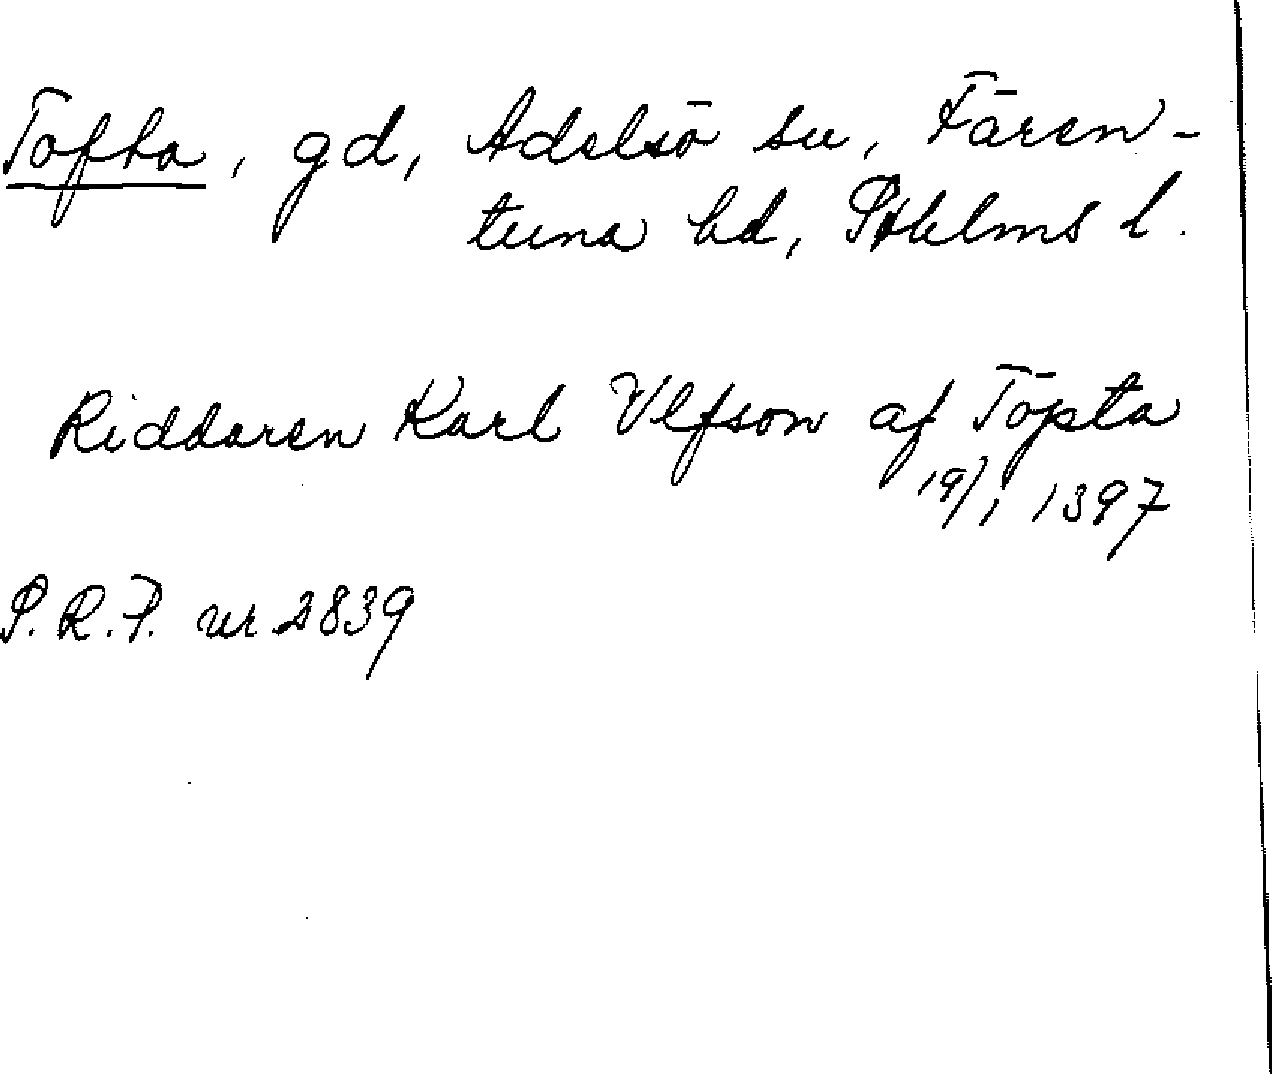 Tofta, gd, Adelsö sn, Fären-
tuna hd, Sthlms l.
Riddaren Karl Ulfson af Töpta
19/1 1397
S.R.P. nr 2839